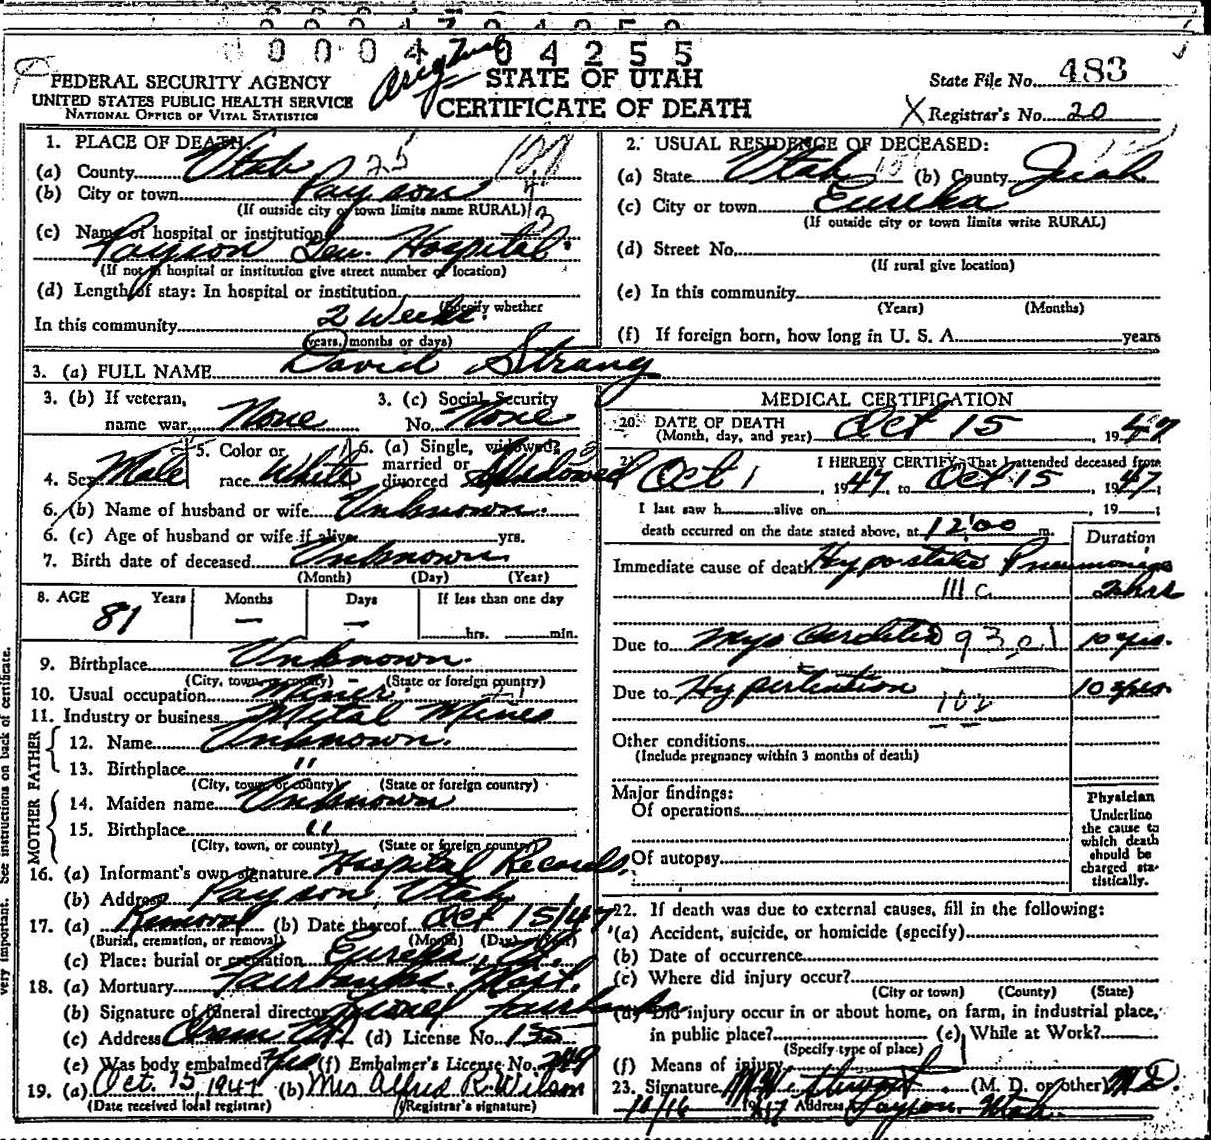 000 4 04255
FEDERAL SECURITY AGENCY
UNITED STATES PUBLIC HEALTH SERVICE
NATIONAL OFFICE OF VITAL STATISTICS
STATE OF UTAH
CERTIFICATE OF DEATH
State File No. 483
X Registrar's No. 20
1. PLACE OF DEATH:
(a) County Utah 25
(b) City or town Payson
(If outside city or town limits name RURAL)
(c) Name of hospital or institution
Payson Hospital
(If not in hospital or institution give street number or location)
(d) Length of stay: In hospital or institution
(Specify whether
In this community 2 Weeks
years, months or days)
2. USUAL RESIDENCE OF DECEASED:
(a) State Utah (b) County Juab
(c) City or town Eureka
(If outside city or town limits write RURAL)
(d) Street No.
(If rural give location)
(e) In this community
(Years) (Months)
(f) If foreign born, how long in U. S. A. years
3. (a) FULL NAME David Strang
3. (b) If veteran, name war None
3. (c) Social Security No. None
4. Sex Male
5. Color or race White
6. (a) Single, widowed, married or divorced Widowed
6. (b) Name of husband or wife Unknown
6. (c) Age of husband or wife if alive yrs.
7. Birth date of deceased Unknown
(Month) (Day) (Year)
8. AGE Years Months Days If less than one day
81 — — hrs. min.
9. Birthplace Unknown
(City, town, or county) (State or foreign country)
10. Usual occupation Miner
11. Industry or business Metal Mines
FATHER
12. Name Unknown
13. Birthplace "
(City, town, or county) (State or foreign country)
MOTHER
14. Maiden name Unknown
15. Birthplace "
(City, town, or county) (State or foreign country)
16. (a) Informant's own signature Hospital Records
(b) Address Payson, Utah
17. (a) Removal (b) Date thereof Oct 15/47
(Burial, cremation, or removal) (Month) (Day) (Year)
(c) Place: burial or cremation Eureka Ut.
18. (a) Mortuary Fairbanks Mort.
(b) Signature of funeral director Fairbanks
(c) Address Orem Ut (d) License No. 155
(e) Was body embalmed? Yes (f) Embalmer's License No. 249
19. (a) Oct. 15, 1947 (b) Mrs Alfred R. Wilson
(Date received local registrar) (Registrar's signature)
MEDICAL CERTIFICATION
20. DATE OF DEATH
(Month, day, and year) Oct 15 1947
21. I HEREBY CERTIFY, That I attended deceased from
Oct 1, 1947, to Oct 15, 1947;
I last saw h alive on , 19 ;
death occurred on the date stated above, at 12:00 m.
Duration
Immediate cause of death Hypostatic Pneumonia
111c
Due to Myocarditis 93c1 10 yrs.
Due to Hypertention 10 yrs.
102
Other conditions
(Include pregnancy within 3 months of death)
Major findings:
Of operations
Of autopsy
Physician
Underline
the cause to
which death
should be
charged sta-
tistically.
22. If death was due to external causes, fill in the following:
(a) Accident, suicide, or homicide (specify)
(b) Date of occurrence
(c) Where did injury occur?
(City or town) (County) (State)
(d) Did injury occur in or about home, on farm, in industrial place,
in public place? (e) While at Work?
(Specify type of place)
(f) Means of injury
23. Signature (M. D. or other) M.D.
10/16 1947 Address Payson, Utah
very important. See instructions on back of certificate.